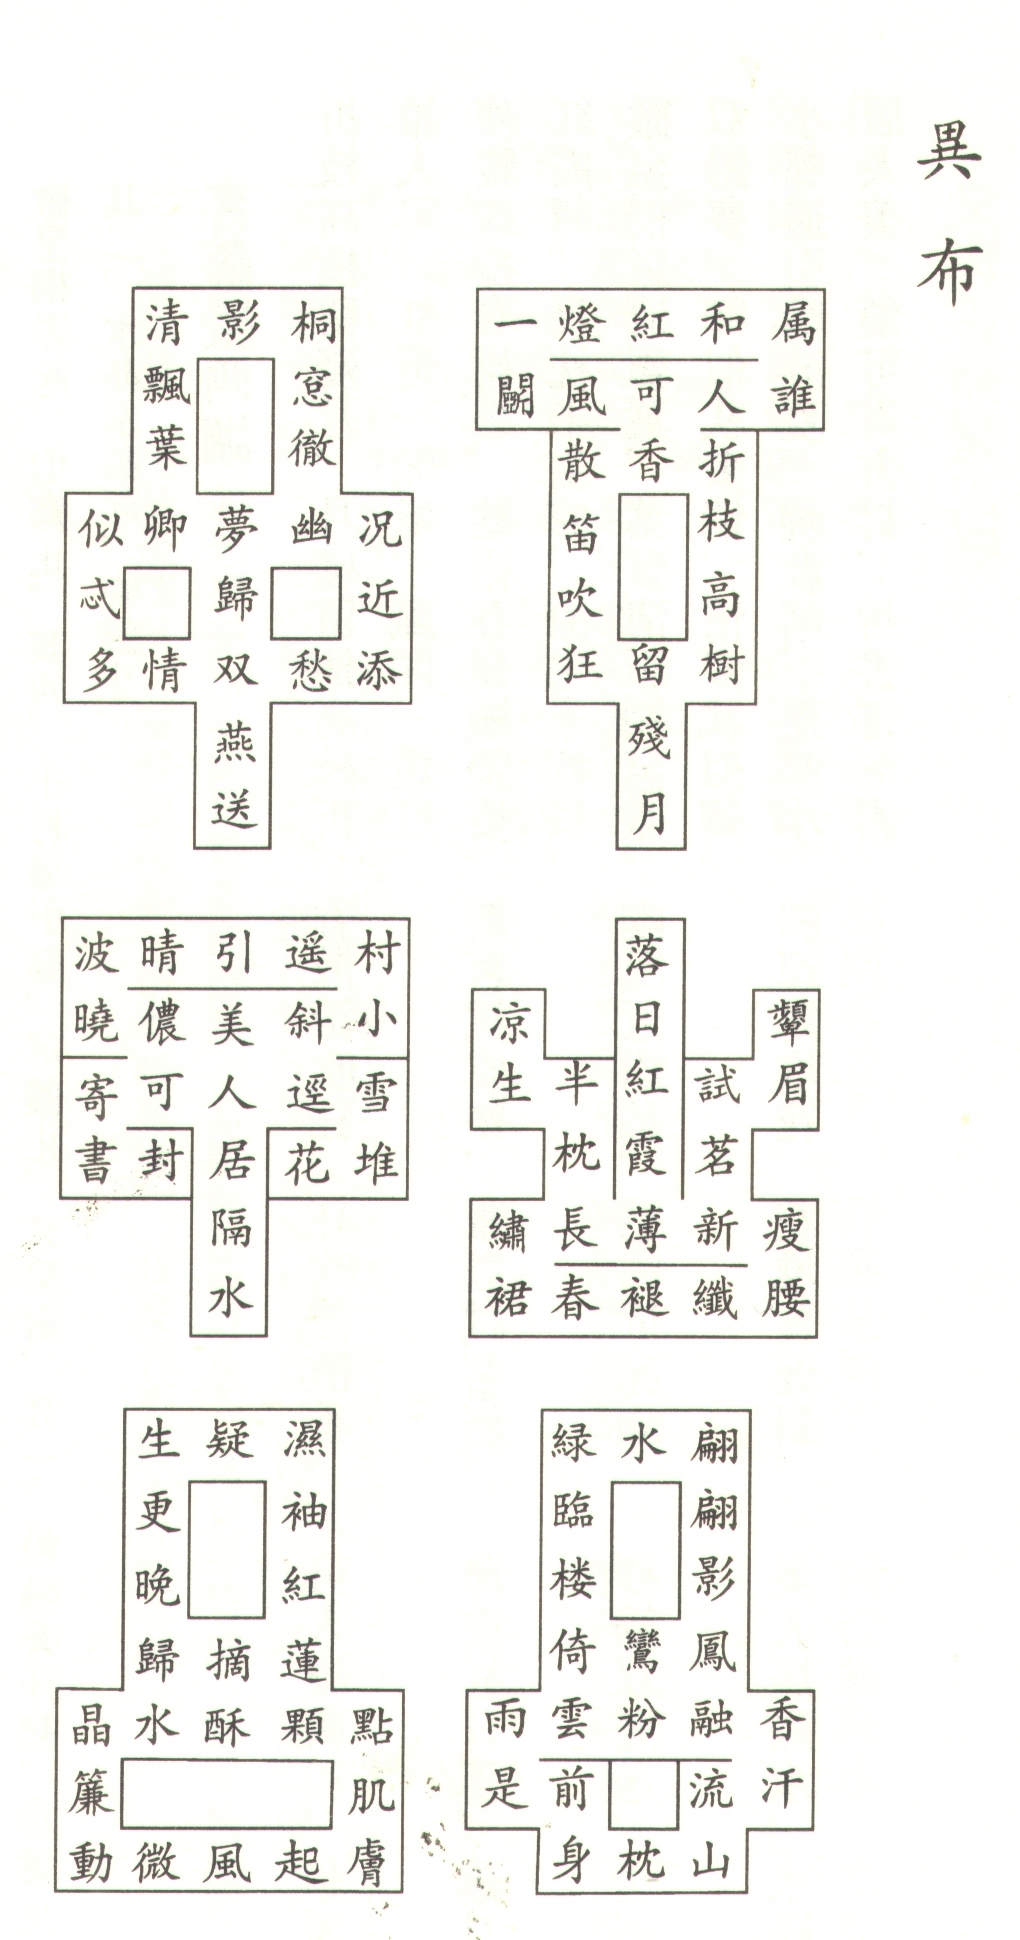 異布
属誰
和人折枝高樹
紅可香留殘月
燈風散笛吹狂
一鬭
顰眉
瘦腰
試茗新纖
落日紅霞薄褪
半枕長春
凉生
繡裙
香汗
翩翩影鳳融流山
水鸞粉枕
緑臨楼倚雲前身
雨是
况近添
桐窓徹幽愁
影夢歸双燕送
清飄葉卿情
似忒多
村小雪堆
遥斜逕花
引美人居隔水
晴儂可封
波曉寄書
點肌膚
濕袖紅蓮顆起
疑摘酥風
生更晚歸水微
晶簾動